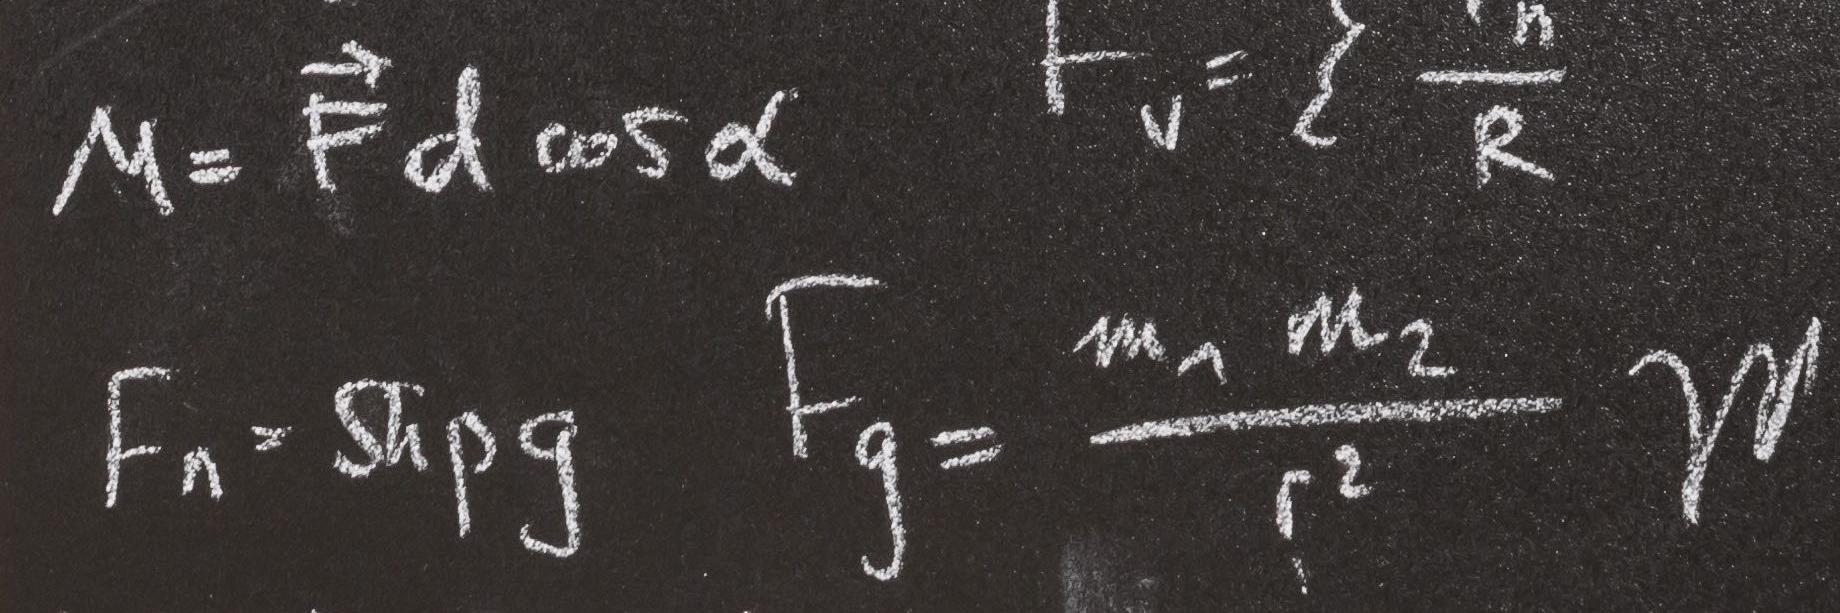 M = F⃗ d cos α
F_v = { F_n / R
F_n = Shρg
F_g = m_1 m_2 / r^2